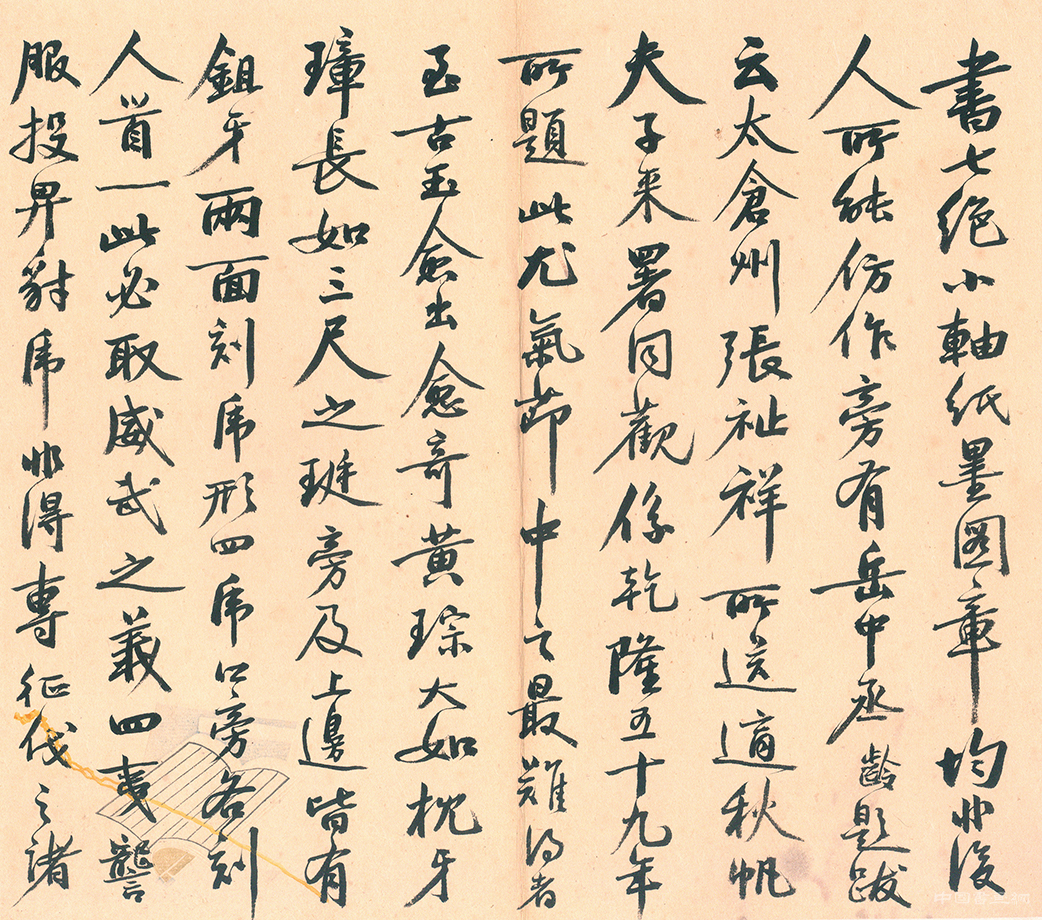 書七绝小軸纸墨图章均非後
人所能仿作旁有岳中丞龄题跋
云太倉州張祉祥所送適秋帆
夫子来署同觀係乾隆五十九年
所題此尤氣节中之最難得者
至古玉愈出愈奇黄琮大如枕牙
璋長如三尺之珽旁及上邊皆有
鉏牙兩面刻虎形四虎口旁各刻
人首一此必取威武之義四夷讋
服投畀豺虎非得專征伐之諸